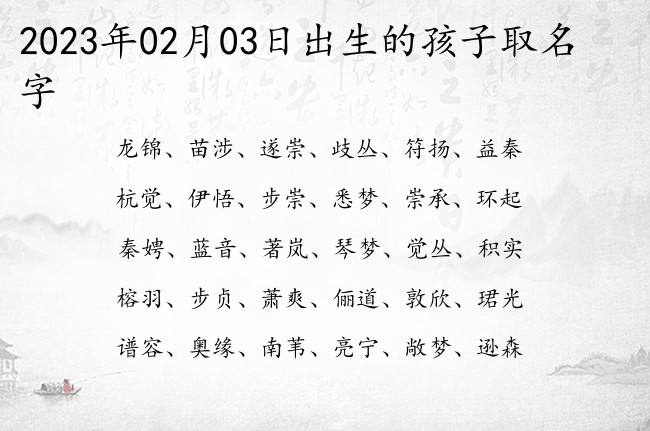 2023年02月03日出生的孩子取名
字
龙锦、苗涉、遂崇、歧丛、符扬、益秦
杭觉、伊悟、步崇、悉梦、崇承、环起
秦娉、蓝音、著岚、琴梦、觉丛、积实
榕羽、步贞、萧爽、俪道、敦欣、珺光
谱容、奥缘、南苇、亮宁、敞梦、逊森